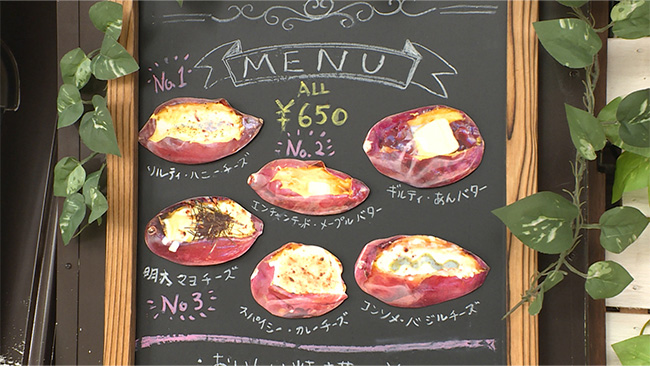 MENU
No.1
ALL
¥650
ソルティ・ハニーチーズ
No.2
エンチャンテッド・メープルバター
ギルティ・あんバター
明太マヨチーズ
No3
スパイシー・カレーチーズ
コンソメ・バジルチーズ